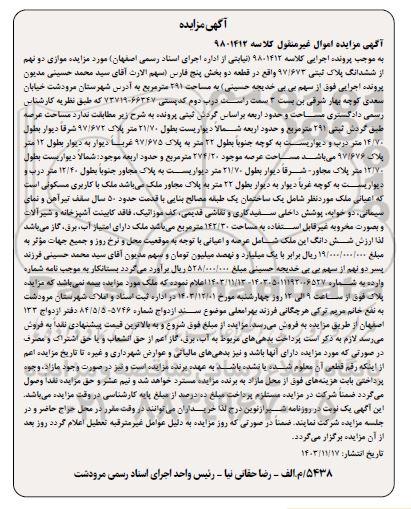 آگهی مزایده
آگهی مزایده اموال غیرمنقول کلاسه ۹۸۰۱۴۱۲
به موجب پرونده اجرایی کلاسه ۹۸۰۱۴۱۲ (نیابتی از اداره اجرای اسناد رسمی اصفهان) مورد مزایده موازی دو نهم
از ششدانگ پلاک ثبتی ۹۷/۶۷۳ واقع در قطعه دو بخش پنج فارس (سهم الارث آقای سید محمد حسینی مدیون
پرونده اجرایی فوق از سهم بی بی خدیجه حسینی) به مساحت ۲۹۱ مترمربع به آدرس شهرستان مرودشت خیابان
سعدی کوچه بهار شرقی بن بست ۲ سمت راست درب دوم کدپستی ۶۶۳۴۷-۷۳۷۱۹ که طبق نظریه کارشناس
رسمی دادگستری مساحت و حدود اربعه براساس گردش ثبتی پرونده به شرح زیر مطابقت ندارد مساحت عرصه
طبق گردش ثبتی ۲۹۱ مترمربع و حدود اربعه شمالاً دیواریست بطول ۲۱/۷۰ متر پلاک ۹۷/۶۷۲ شرقاً دیوار بطول
۱۴/۷۰ متر درب و دیواریست به کوچه جنوباً بطول ۲۲ متر به پلاک ۹۷/۶۷۵ غرباً دیوار به دیوار بطول ۱۲ متر
پلاک ۹۷/۶۷۶ می‌باشد مساحت عرصه موجود ۲۷۴/۲۰ مترمربع و حدود اربعه موجود: شمالاً دیواریست بطول
۱۲/۷۰ متر پلاک مجاور- شرقاً دیوار بطول ۲۱/۷۰ متر دیواریست به پلاک مجاور جنوباً بطول ۱۲/۴۰ متر درب و
دیواریست به کوچه غرباً دیوار به دیوار بطول ۲۲ متر به پلاک مجاور ملکی‌باشد ملک با کاربری مسکونی است
که اعیانی ملک موردنظر شامل یک ساختمان یک طبقه مصالح بنایی با قدمت حدود ۵۰ سال سقف تیرآهن و نمای
سیمانی، دو خوابه، پوشش داخلی سفیدکاری و نقاشی قدیمی، کف موزائیک، فاقد کابینت آشپزخانه و شیرآلات
و بصورت مخروبه غیرقابل استفاده به مساحت ۱۴۲/۳۰ مترمربع می‌باشد ملک دارای امتیاز آب، برق، گاز می‌باشد
لذا ارزش شش دانگ این ملک شامل عرصه و اعیانی با توجه به موقعیت محل و نرخ روز و جمیع جهات مؤثر به
مبلغ ۱۹/۰۰۰/۰۰۰/۰۰۰ ریال برابر با یک میلیارد و نهصد میلیون تومان و سهم مدیون آقای سید محمد حسینی فرزند
پسر دو نهم از سهم بی بی خدیجه حسینی مبلغ ۵۲۸/۰۰۰/۰۰۰ ریال برآورد می‌گردد بستانکار به موجب نامه شماره
وارده به شماره ۱۴۰۳۰۵۰۱۱۱۹۳۰۰۶۵۲۷-۱۴۰۳/۱۱/۱۳ اعلام نموده که ملک مورد مزایده بیمه نمی‌باشد که مزایده
پلاک فوق از ساعت ۹ الی ۱۲ روز چهارشنبه مورخ ۱۴۰۳/۱۲/۰۱ در اداره ثبت اسناد و املاک شهرستان مرودشت
به نفع خانم مریم ترکی هرچگانی فرزند بهرامعلی موضوع سند ازدواج شماره ۵۷۴۶-۸۴/۵/۵ دفتر ازدواج ۱۳۳
اصفهان از طریق مزایده به فروش می‌رسد. مزایده از مبلغ فوق شروع و به بالاترین قیمت پیشنهادی نقدا به فروش
می‌رسد لازم به ذکر است پرداخت بدهی‌های مربوط به آب، برق، گاز اعم از حق انشعاب و یا حق اشتراک و مصرف
در صورتی که مورد مزایده دارای آنها باشد و نیز بدهی‌های مالیاتی و عوارض شهرداری و غیره تا تاریخ مزایده اعم
از اینکه رقم قطعی آن معلوم شده یا نشده باشد به عهده برنده مزایده است و نیز در صورت وجود مازاد، وجوه
پرداختی بابت هزینه‌های فوق از محل مازاد به برنده مزایده مسترد خواهد شد و نیم عشر و حق مزایده نقدا وصول
می‌گردد ضمناً شرکت در مزایده مستلزم پرداخت مبلغ ده درصد از مبلغ پایه کارشناسی در وقت مزایده می‌باشد.
این آگهی یک نوبت در روزنامه شیرازنوین درج لذا خریداران می‌توانند در وقت مقرر در محل حراج حاضر و در
جلسه مزایده شرکت نمایند. ضمناً در صورتی که روز مزایده به دلیل عوامل غیرمترقبه تعطیل اعلام گردد روز بعد
از آن مزایده برگزار می‌گردد.
تاریخ انتشار: ۱۴۰۳/۱۱/۱۷
۵۴۳۸/م.الف - رضا حقانی نیا - رئیس واحد اجرای اسناد رسمی مرودشت